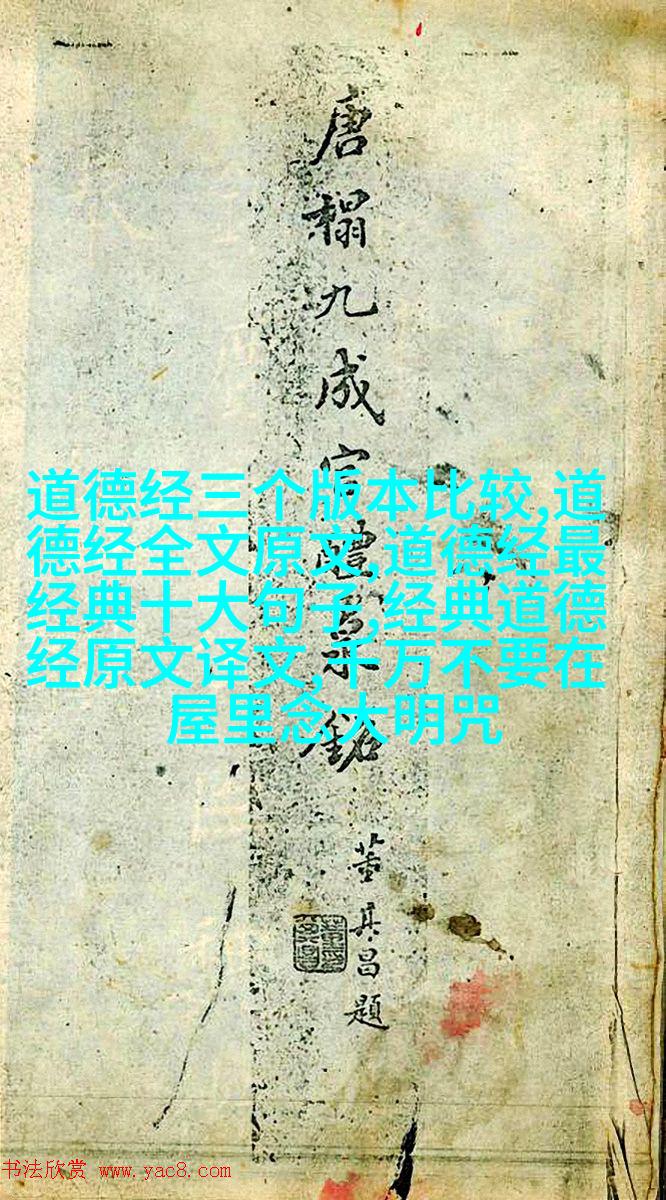 唐榻九成宫醴泉銘
董其昌題
道德经三个版本比较,道
德经全文原文,道德经最
经典十大句子,经典道德
经原文译文,千万不要在
屋里念大明咒
书法欣赏 www.yac8.com